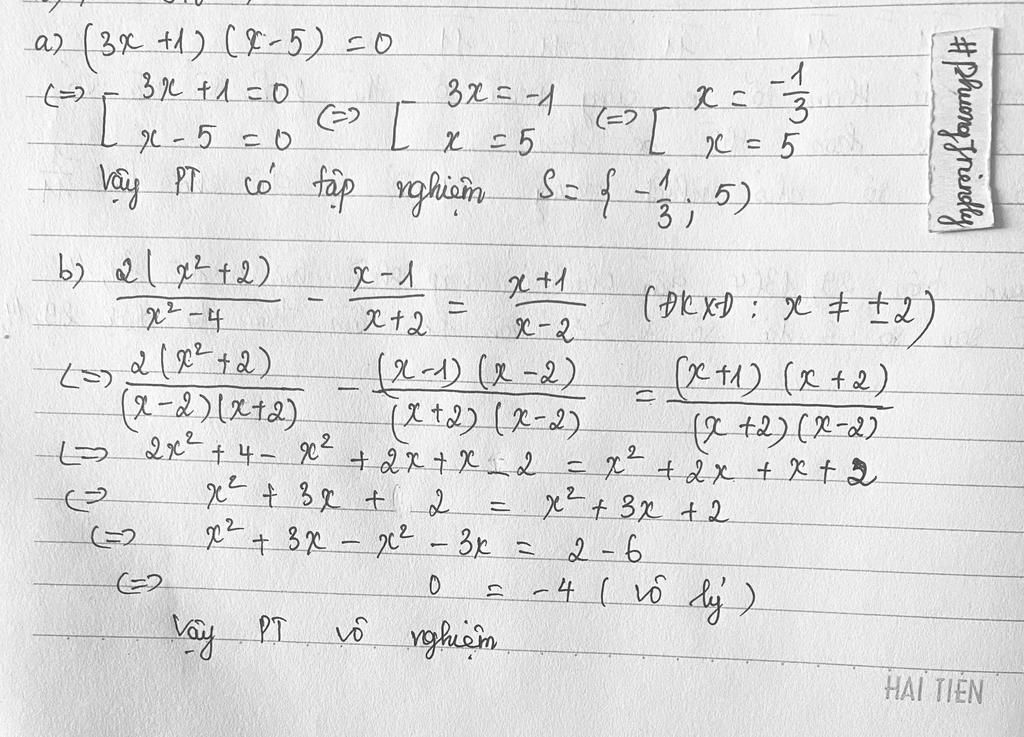 a) (3x + 1) (x - 5) = 0
<=> [ 3x + 1 = 0 <=> [ 3x = -1 <=> [ x = -1/3
x - 5 = 0 x = 5 x = 5
Vậy PT có tập nghiệm S = { -1/3 ; 5)
#PhuongTriendly
b) 2( x² + 2) / x² - 4 - x - 1 / x + 2 = x + 1 / x - 2 (ĐKXĐ : x ≠ ± 2)
<=> 2 (x² + 2) / (x - 2)(x + 2) - (x - 1) (x - 2) / (x + 2) (x - 2) = (x + 1) (x + 2) / (x + 2) (x - 2)
<=> 2x² + 4 - x² + 2x + x - 2 = x² + 2x + x + 2
<=> x² + 3x + 2 = x² + 3x + 2
<=> x² + 3x - x² - 3x = 2 - 6
<=> 0 = -4 ( vô lý )
Vậy PT vô nghiệm
HẢI TIẾN